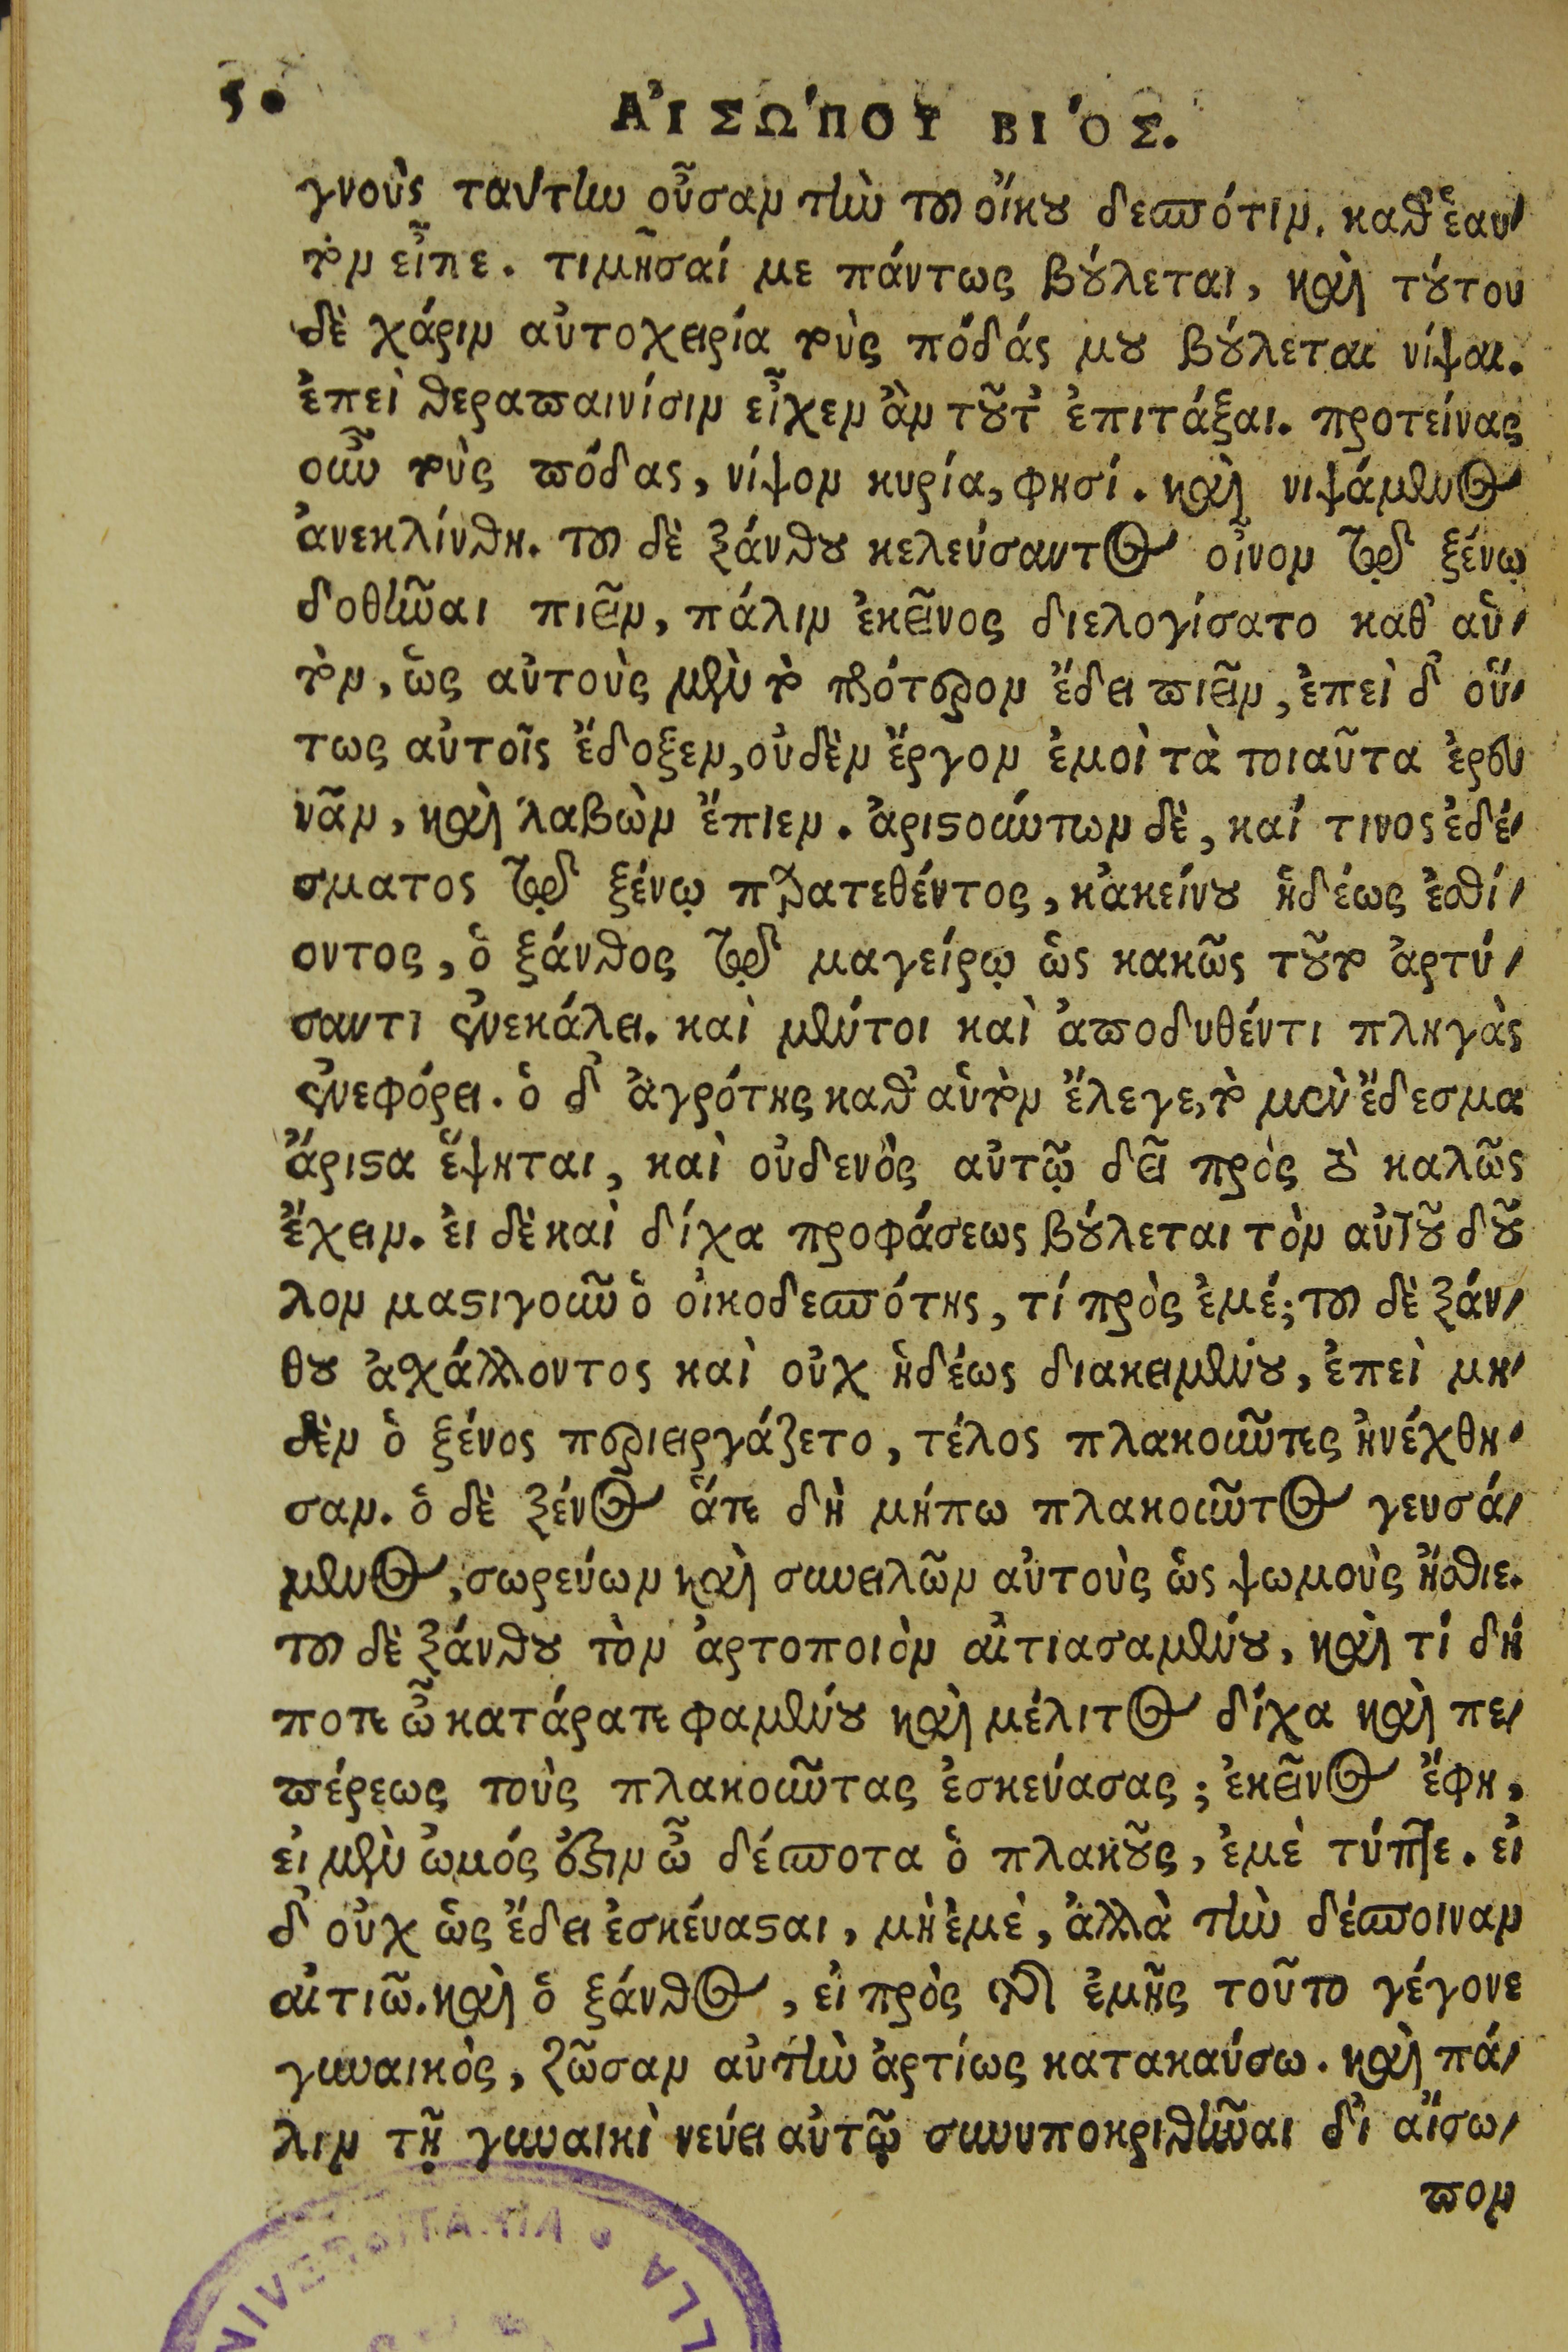 50
ΑἸΣΩ΄ΠΟΥ ΒΙ΄ΟΣ.
γνοὺς ταύτην οὖσαν τὴν τοῦ οἴκου δεσπότιν, καθ' ἑαυ-
τὸν εἶπε. τιμῆσαί με πάντως βούλεται, καὶ τούτου
δὲ χάριν αὐτοχειρία τοὺς πόδάς μου βούλεται νίψαι.
ἐπεὶ θεραπαινίσιν εἶχεν ἂν τοῦτ' ἐπιτάξαι. προτείνας
οὖν τοὺς πόδας, νίψον κυρία, φησί. καὶ νιψάμενος
ἀνεκλίνθη. τοῦ δὲ ξάνθου κελεύσαντος οἶνον τῷ ξένῳ
δοθῆναι πιεῖν, πάλιν ἐκεῖνος διελογίσατο καθ' αὑ-
τὸν, ὡς αὐτοὺς μὲν τὸ πρότερον ἔδει πιεῖν, ἐπεὶ δ' οὕ-
τως αὐτοῖς ἔδοξεν, οὐδὲν ἔργον ἐμοὶ τὰ τοιαῦτα ἐρευ
νᾶν, καὶ λαβὼν ἔπιεν. ἀριστούντων δὲ, καί τινος ἐδέ-
σματος τῷ ξένῳ παρατεθέντος, κἀκείνου ἡδέως ἐσθί-
οντος, ὁ ξάνθος τῷ μαγείρῳ ὡς κακῶς τοῦτο ἀρτύ-
σαντι ἐνεκάλει. καὶ μέντοι καὶ ἀποδυθέντι πληγὰς
ἐνεφόρει. ὁ δ' ἀγρότης καθ' αὑτὸν ἔλεγε, τὸ μὲν ἔδεσμα
ἄριστα ἕψηται, καὶ οὐδενὸς αὐτῷ δεῖ πρὸς τὸ καλῶς
ἔχειν. εἰ δὲ καὶ δίχα προφάσεως βούλεται τὸν αὑτοῦ δοῦ
λον μαστιγοῦν ὁ οἰκοδεσπότης, τί πρὸς ἐμέ; τοῦ δὲ ξάν-
θου ἀσχάλλοντος καὶ οὐχ ἡδέως διακειμένου, ἐπεὶ μη-
δὲν ὁ ξένος περιειργάζετο, τέλος πλακοῦντες ἠνέχθη-
σαν. ὁ δὲ ξένος ἅτε δὴ μήπω πλακοῦντος γευσά-
μενος, σωρεύων καὶ συνειλῶν αὐτοὺς ὡς ψωμοὺς ἤσθιε.
τοῦ δὲ ξάνθου τὸν ἀρτοποιὸν αἰτιασαμένου, καὶ τί δή
ποτε ὦ κατάρατε φαμένου καὶ μέλιτος δίχα καὶ πε-
πέρεως τοὺς πλακοῦντας ἐσκεύασας; ἐκεῖνος ἔφη,
εἰ μὲν ὠμός ἐστιν ὦ δέσποτα ὁ πλακοῦς, ἐμὲ τύπτε. εἰ
δ' οὐχ ὡς ἔδει ἐσκέυασται, μὴ ἐμὲ, ἀλλὰ τὴν δέσποιναν
αἰτιῶ. καὶ ὁ ξάνθος, εἰ πρὸς τῆς ἐμῆς τοῦτο γέγονε
γυναικὸς, ζῶσαν αὐτὴν ἀρτίως κατακαύσω. καὶ πά-
λιν τῇ γυναικὶ νεύει αὐτῷ συνυποκριθῆναι δι' αἴσω-
πον